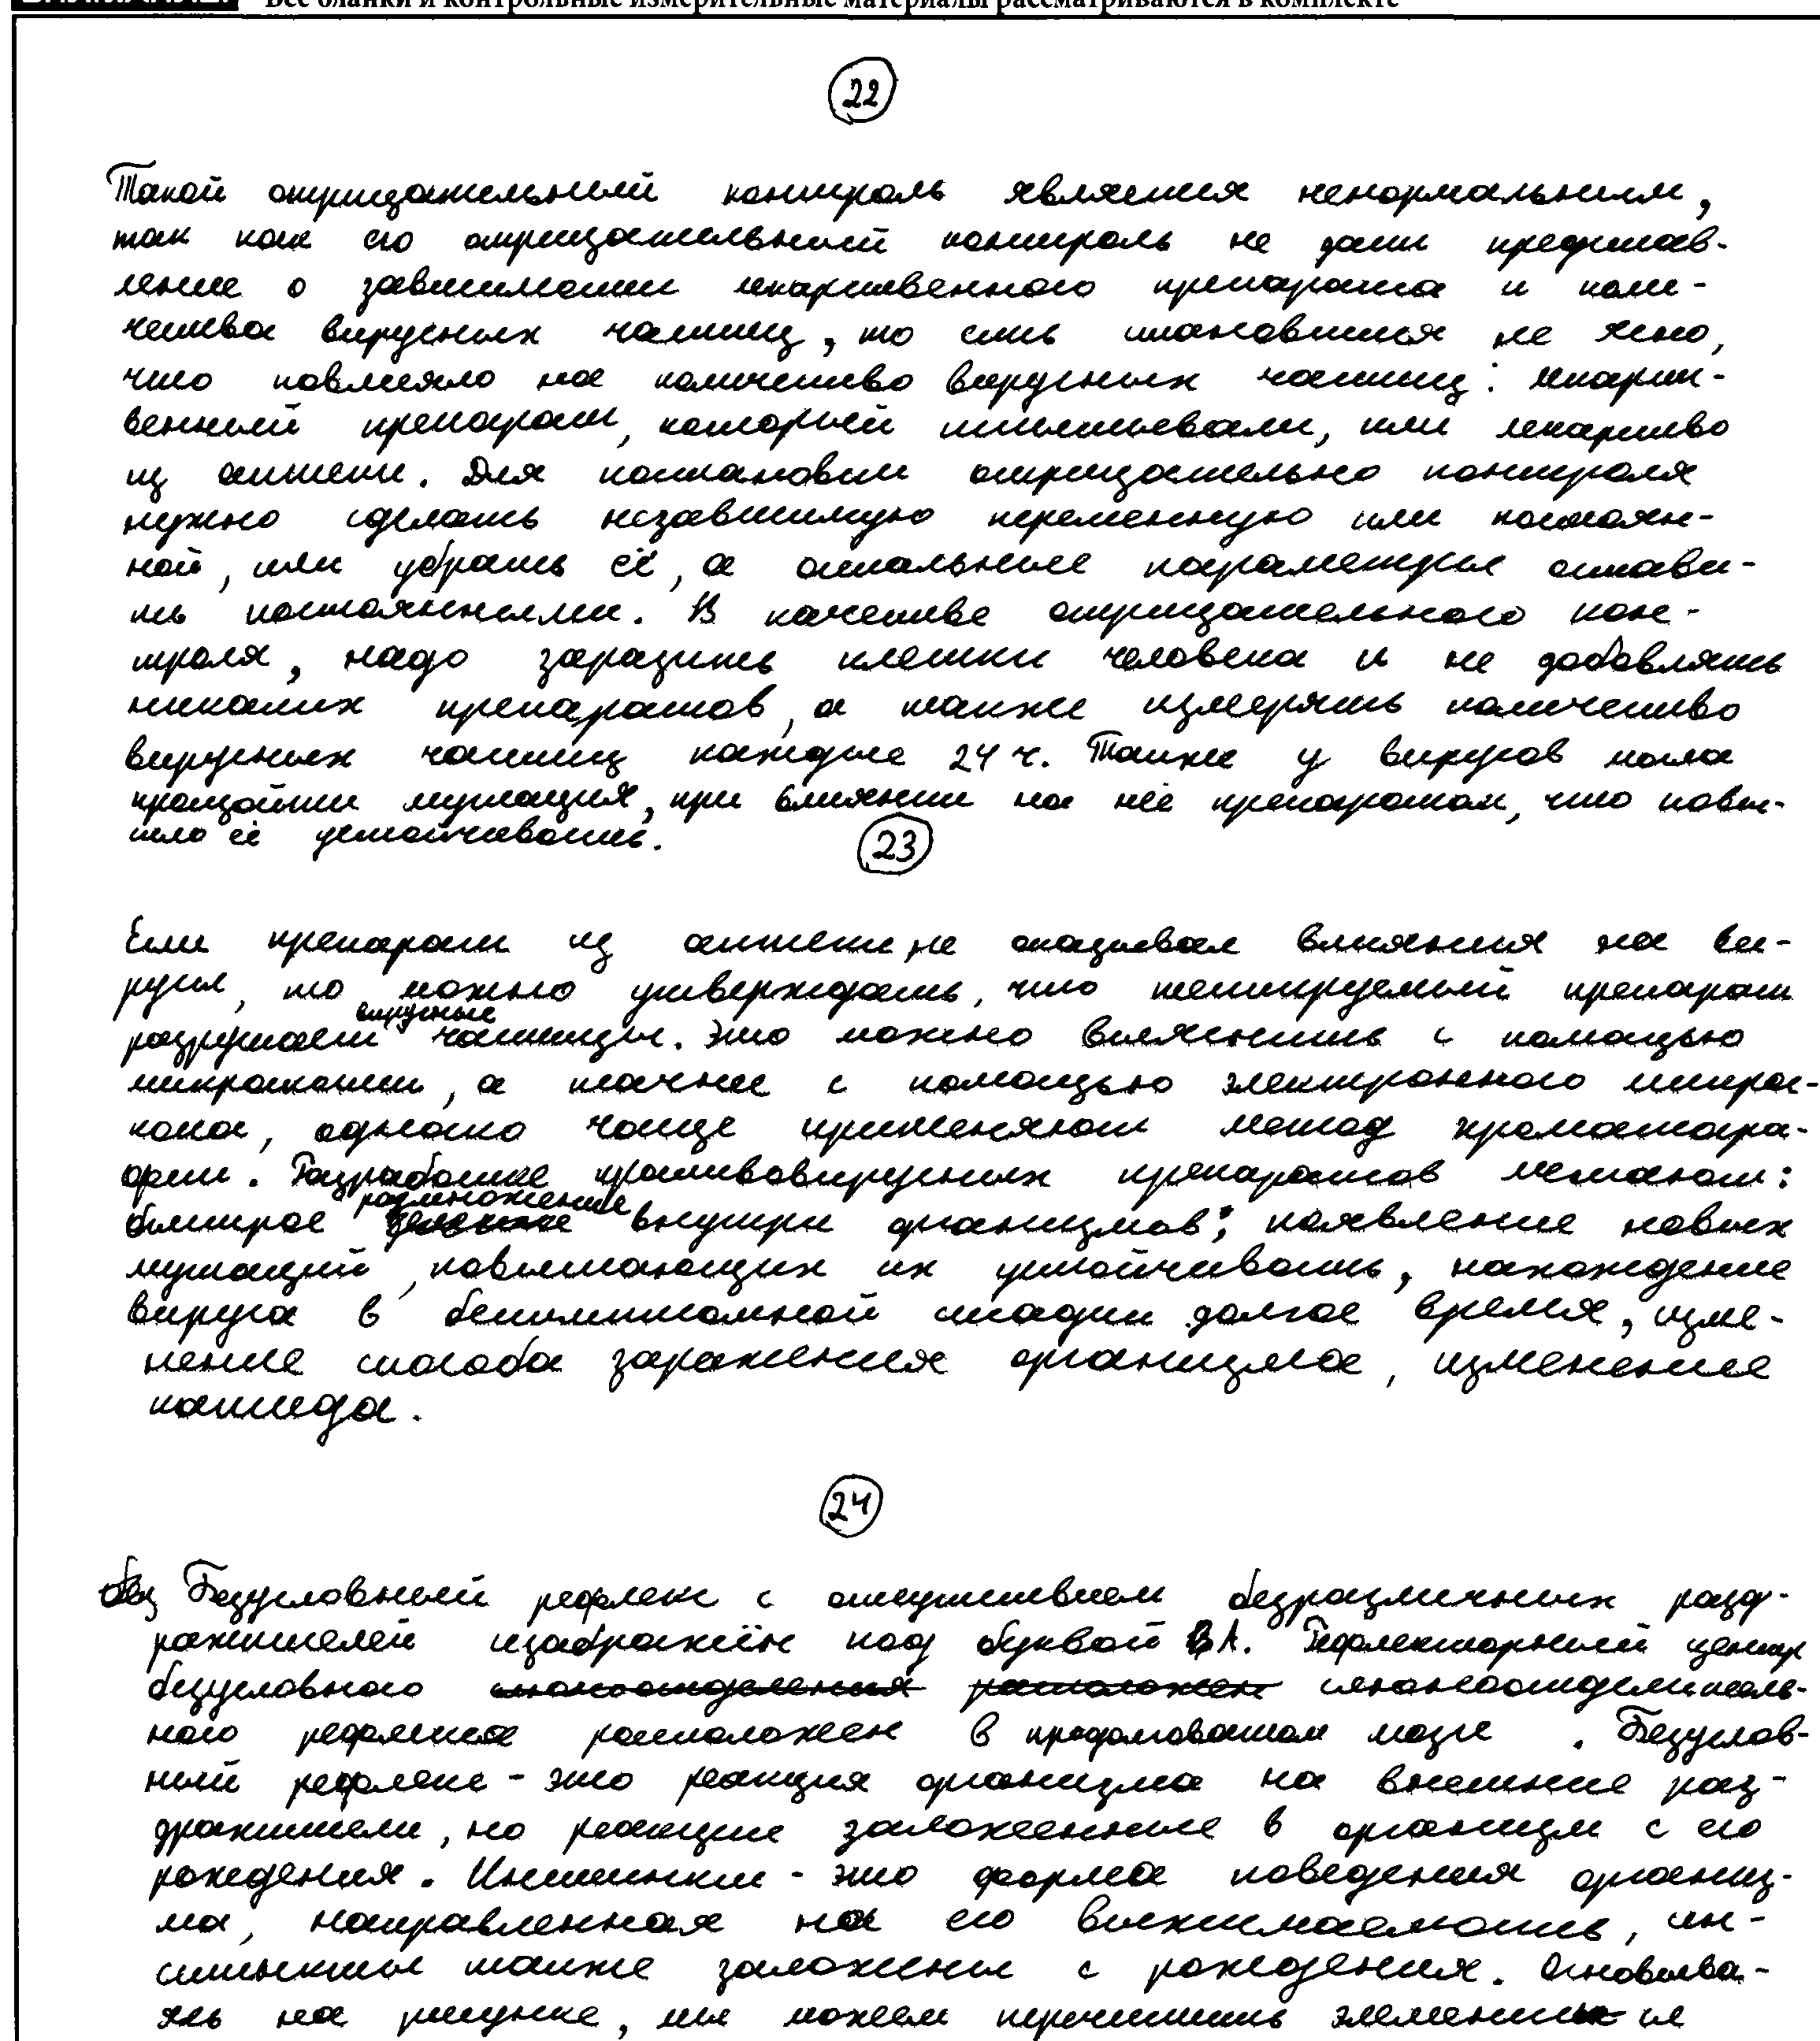 Все бланки и контрольные измерительные материалы рассматриваются в комплекте
22
Такой отрицательный контроль является ненормальным,
так как его отрицательный контроль не даст представ-
ление о зависимости лекарственного препарата и коли-
чества вирусных частиц, то есть становится не ясно,
что повлияло на количество вирусных частиц: лекарст-
венный препарат, который испытывали, или лекарство
из аптеки. Для постановки отрицательно контроля
нужно сделать независимую переменную или постоян-
ной, или убрать её, а остальные параметры остави-
ть постоянными. В качестве отрицательного кон-
троля, надо заразить клетки человека и не добавлять
никаких препаратов, а также измерять количество
вирусных частиц каждые 24 ч. Также у вирусов могла
произойти мутация, при влиянии на неё препаратом, что повы-
сило её устойчивость.
23
Если препарат из аптеки не оказывал влияния на ви-
русы, то можно утверждать, что тестируемый препарат
разрушает вирусные частицы. Это можно выяснить с помощью
микроскопии, а точнее с помощью электронного микрос-
копа, однако чаще применяют метод хроматогра-
фии. Разработке противовирусных препаратов мешают:
быстрое размножение внутри организмов; появление новых
мутаций, повышающих их устойчивость, нахождение
вируса в бессимптомной стадии долгое время, изме-
нение способа заражения организма, изменение
капсида.
24
Безусловный рефлекс с отсутствием безразличных разд-
ражителей изображён под буквой А. Рефлекторный центр
безусловного слюноотделитель-
ного рефлекса расположен в продолговатом мозге. Безуслов-
ный рефлекс - это реакция организма на внешние раз-
дражители, но реакции заложенные в организм с его
рождения. Инстинкт - это форма поведения организ-
ма, направленная на его выживаемость, ин-
стинкты также заложены с рождения. Основыва-
ясь на рисунке, мы можем перечислить